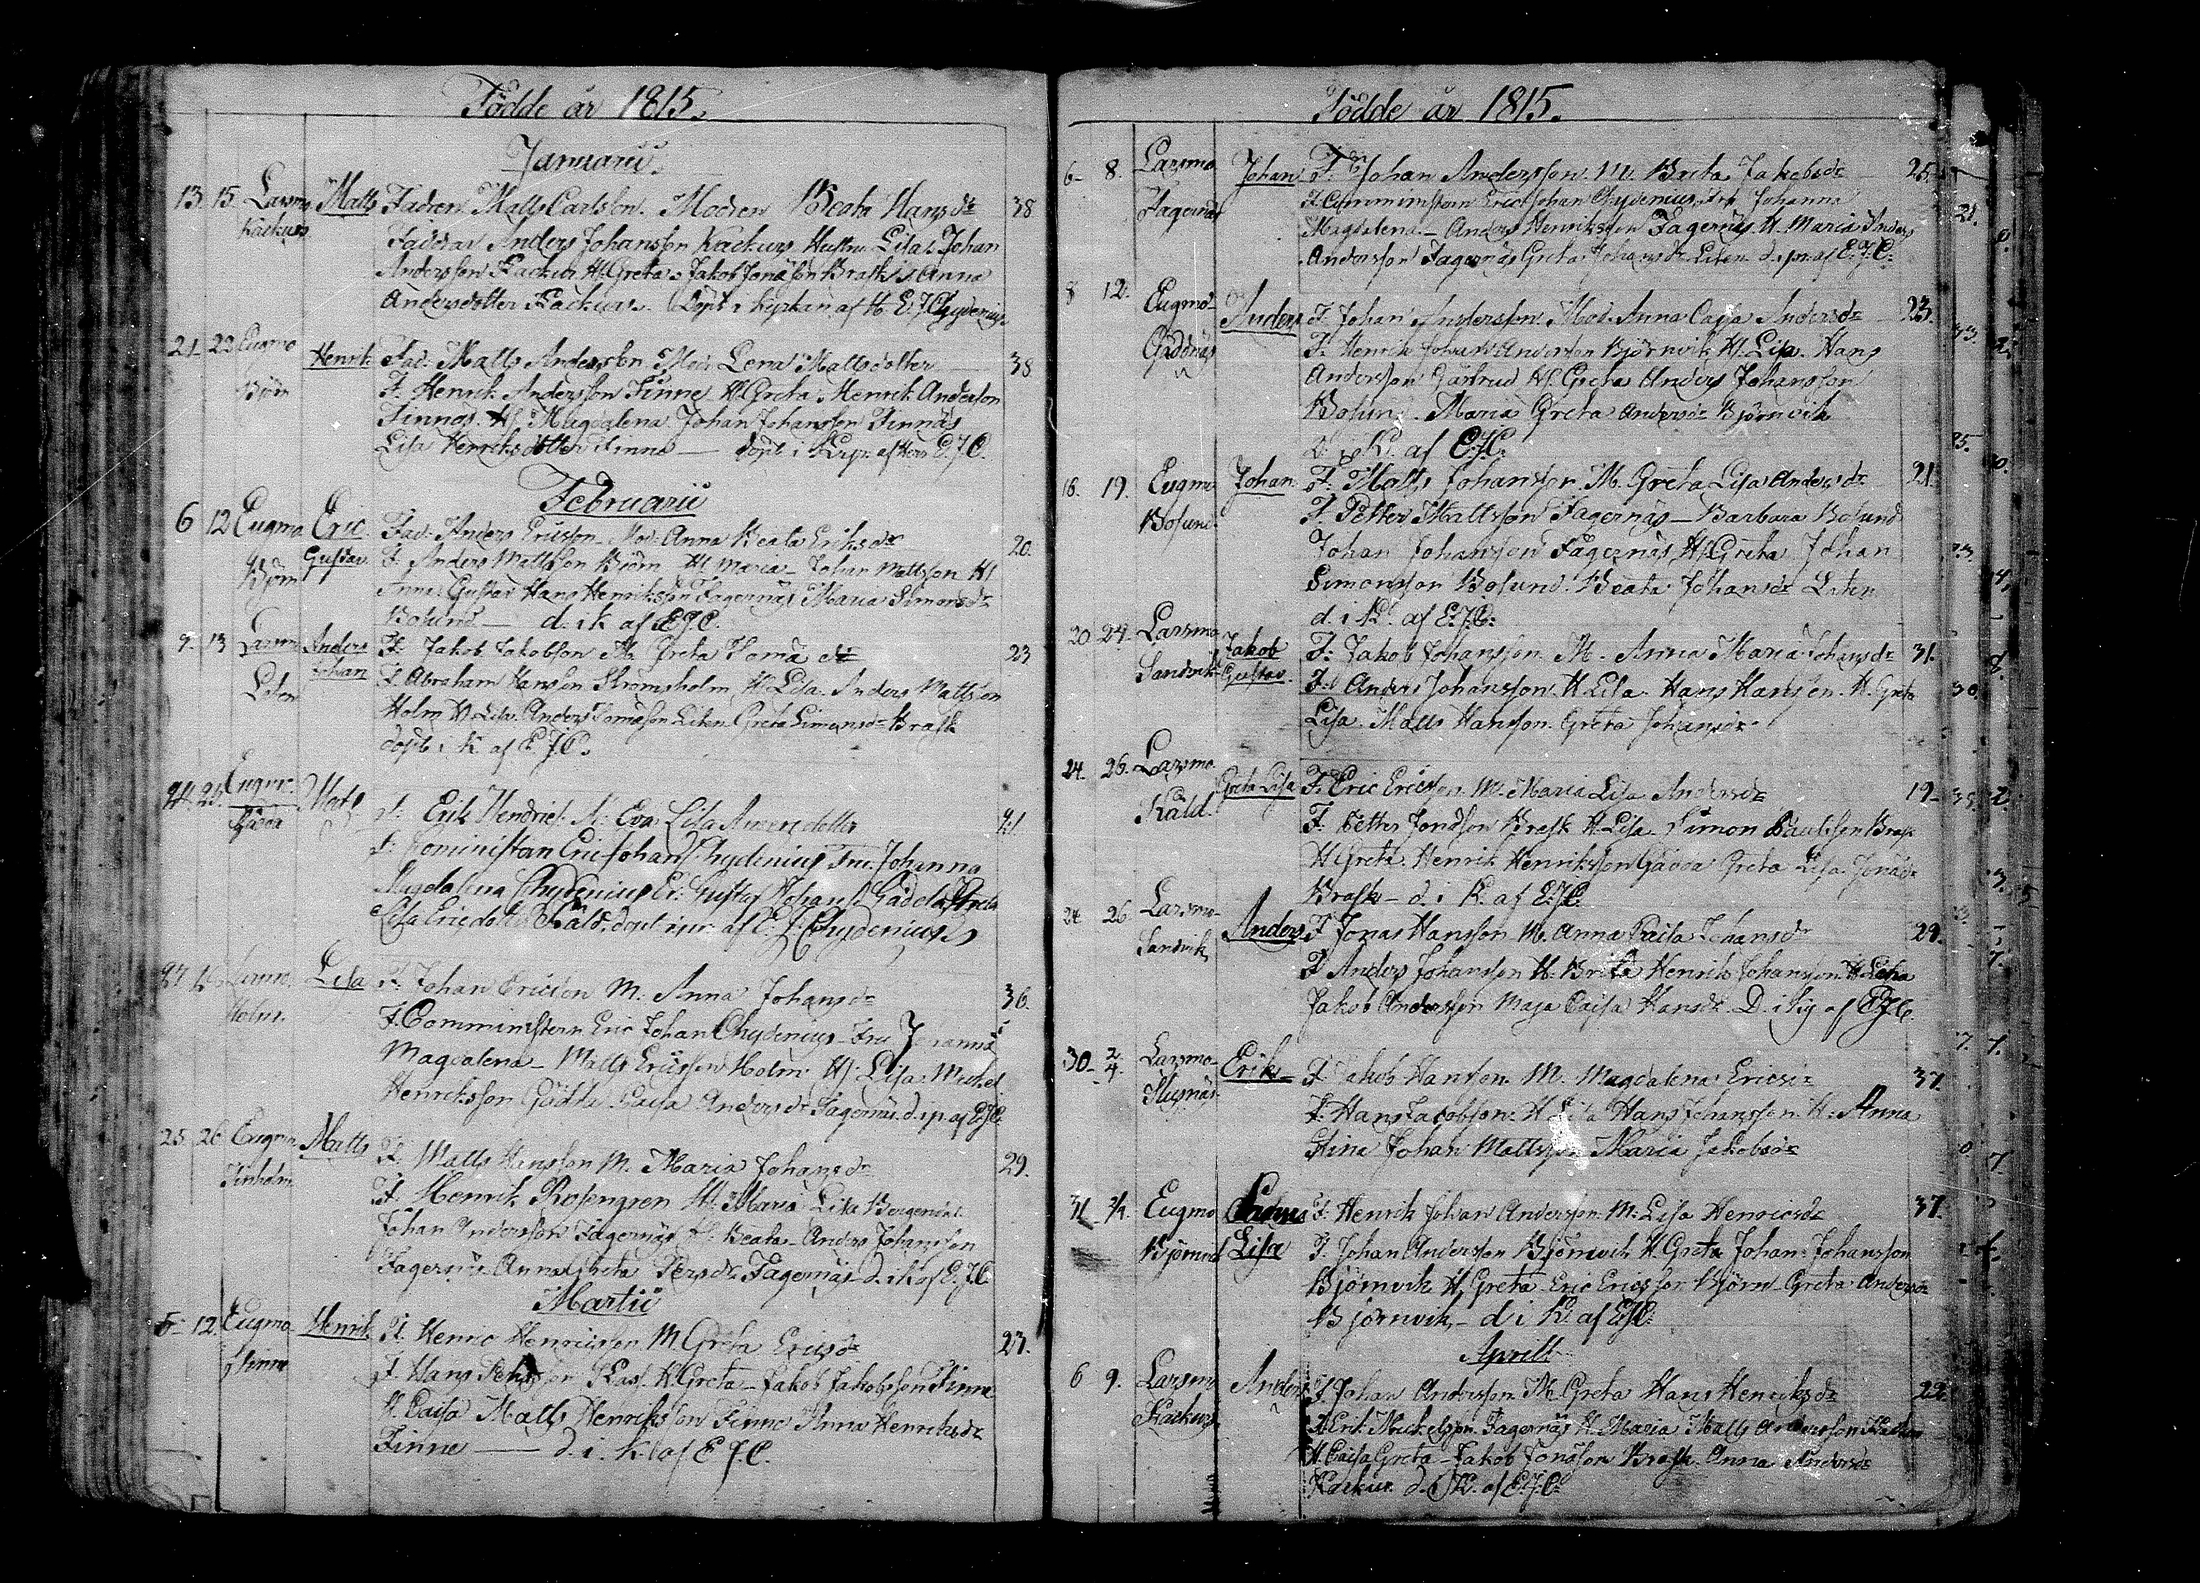 Födde år 1815.
Januarii
13. 15. Larsmo Matts Fadren Matts Carlsson. Modren Beata Hansdr 38
Kackurs Faddrar Anders Johansson Kackurs Hustru Lisa. Johan
Andersson Kackur H. Greta. Jakob Jonasson Brask. Anna
Andersdotter Kackurs. Döpt i kyrkan af H. E. J. Chydenius
21. 22 Eugmo Henrik Fad. Matts Andersson Mod. Lena Mattsdotter 38
Björn F. Henrik Andersson Finne H. Greta Henrik Andersson
Finnäs. H. Magdalena Johan Johansson Finnäs
Lisa Henriksdotter Finne — döpt i af Herr E. J. C.
Februarii
6 12 Eugmo Eric Fad. Anders Ericson Mod. Anna Beata Eriksdr 20.
Björn Gustav F. Anders Mattsson Björn H Maria. Johan Mattsson H
Anna Gustav Hans Henriksson Fagernäs Maria Simonsdr
Bosund — d. i k af E. J. C.
9. 13 Larsmo Anders F. Jakob Jakobson M. Greta Tomä dr 23
Liten Johan F. Abraham Hansson Strömsholm H Lisa. Anders Mattsson
Holm H. Lisa. Anders Tomäson Liten Greta Simonsdr Brask
döpt i K af E. J. C.
24. 25. Eugmo Mats F. Erik Hendrics. M: Eva Lisa dotter 21
Gädda F: Cominist: Eric Johan Chydenius Fru. Johanna
Magdalena Chydenius Er. Gustaf Johans. Gädda Greta
Lisa Ericdotter Kåld. döpt i pr. af E. J. Chydenius
Larsmo Lisa F. Johan Ericson M. Anna Johansdr 36.
Holm. F. Comministern Eric Johan Chydenius Fru Johanna
Magdalena — Matts Ericsson Holm. H. Lisa. Michel
Henriksson Gädda. Caisa Andersdr Fagernäs d. i p. af E. J. C.
25. 26 Eugmo Matts F. Matts Hansson M. Maria Johansdr 29.
F. Henrik Rosengren H. Maria Lisa Bergendal
Johan Andersson Fagernäs H. Beata. Anders Johansson
Fagernäs. Anna Greta Persdr Fagernäs d. i k af E. J. C.
Martii
5 12. Eugmo Henrik F. Henric Henricsson M. Greta Ericsdr 23.
Finne F. Hans H. Greta — Jakob Jakobsson Finne
H. Caisa Matts Henriksson Finne Anna Henriksdr
Finne — d. i. k. af E. J. C.
Födde år 1815.
6 8. Larsmo Johan F. Johan Andersson. M. Brita Jakobsdr 25.
Fagernäs F. Comministern Eric Johan Chydenius Fru Johanna
Magdalena — Anders Henriksson Fagernäs H. Maria Anders
Andersson Fagernäs Greta Johansdr Liten d. i pr. af E. J. C.
8 12. Eugmo Anders F. Johan Andersson Mod. Anna Caisa Andersdr 23.
Gäddnäs F. Henrik Johan Anderson Björnvik H. Lisa. Hans
Andersson Gertrud H. Greta Anders Johansson
Bosund. Maria Greta Andersdr Björnvik
d. i K. af E. J. C.
16. 19. Eugmo Johan F. Matts Johansson M. Greta Lisa Andersdr 21.
Bosund F. Petter Mattsson Fagernäs — Barbara Bosund
Johan Johansson Fagernäs H. Greta Johan
Simonsson Bosund. Beata Johansdr Liten
d. i K. af E. J. C.
20 24. Larsmo Jakob F. Jakob Johansson M. Anna Maria Johansdr 31.
Sandvik Gustav. F. Anders Johansson H. Lisa. Hans Hansson. H. Greta
Lisa. Matts Hansson. Greta Johansdr
24. 26. Larsmo Greta Lisa F. Eric Ericsson M. Maria Lisa Andersdr 19
Kåld. F. Petter Jonsson Brask H. Lisa. Simon Paulsson Brask
H. Greta. Henrik Henriksson Gädda Greta Lisa Jonädr
Brask — d. i K. af E. J. C.
24 26 Larsmo Anders F Jonas Hansson M. Anna Caisa Johansdr 29.
Sandvik F Anders Johansson H. Brita Henrik Johansson H Lena
Jakob Andersson Maja Caisa Hansdr. D. i Ky af E. J. C.
30 2/4 Larsmo Erik F. Jakob Hansson. M. Magdalena Ericsdr 37.
F. Hans Jacobson. H. Lisa Hans Johansson. H. Anna
Stina Johan Mattsson Maria Jakobsdr
31 2/4 Eugmo F. Henrik Johan Andersson M. Lisa Henricsdr 37.
Lisa F. Johan Andersson Björnvik H. Greta Johan Johansson
Björnvik H. Greta Eric Ericsson Björn Greta Andersdr
Björnvik, — d i K. af E. J. C.
Aprill
6 9. Larsmo Anders F. Johan Andersson M. Greta Hans Henriksdr 22
Kackurs F. Erik Mickelsson Fagernäs H. Maria Matts Andersson Kackur
H. Caisa Greta — Jakob Jonäson Brask. Anna Andersdr
Kackur d. i K. af E. J. C.